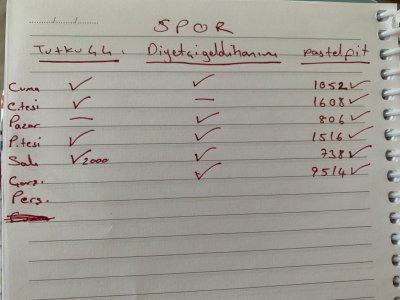 ..../..../....
SPOR
Tutku44. Diyetçigeldihanım pastelpit
Cuma ✓ ✓ 1052✓
C.tesi ✓ — 1608✓
Pazar — ✓ 806✓
P.tesi ✓ ✓ 1516✓
Salı ✓2000 ✓ 738✓
Çarş. ✓ 9514✓
Perş.